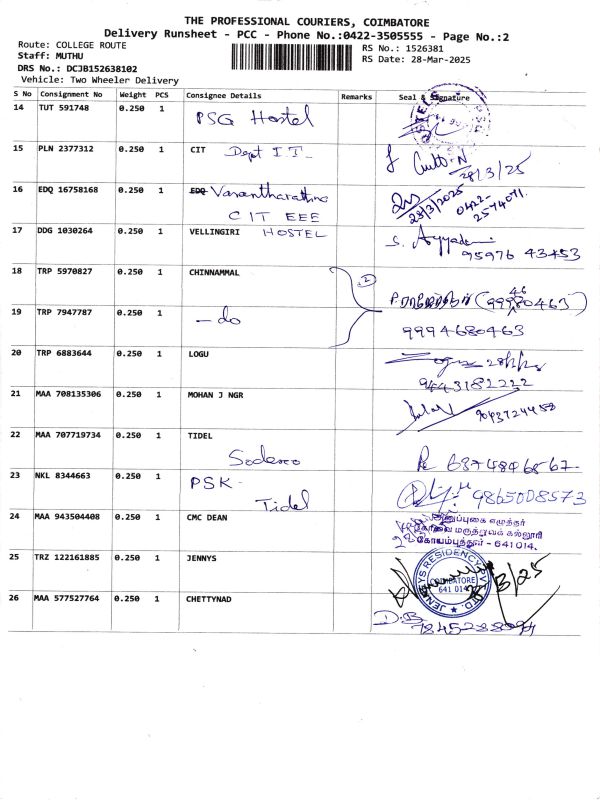 THE PROFESSIONAL COURIERS, COIMBATORE
Delivery Runsheet - PCC - Phone No.:0422-3505555 - Page No.:2
Route: COLLEGE ROUTE
RS No.: 1526381
Staff: MUTHU
RS Date: 28-Mar-2025
DRS No.: DCJB152638102
Vehicle: Two Wheeler Delivery
S No Consignment No Weight PCS Consignee Details Remarks Seal & Signature
14 TUT 591748 0.250 1 PSG Hostel
15 PLN 2377312 0.250 1 CIT Dept I.T-
28/3/25
16 EDQ 16758168 0.250 1 EDQ
28/3/2025 0422-2574071.
CIT EEE
17 DDG 1030264 0.250 1 VELLINGIRI HOSTEL
95976 43453
18 TRP 5970827 0.250 1 CHINNAMMAL 2
19 TRP 7947787 0.250 1 - do
9994680463
20 TRP 6883644 0.250 1 LOGU
9443182222
21 MAA 708135306 0.250 1 MOHAN J NGR
22 MAA 707719734 0.250 1 TIDEL
Sodexo
23 NKL 8344663 0.250 1 PSK-
Tidel 9865008573
24 MAA 943504408 0.250 1 CMC DEAN
அனுப்புகை எழுத்தர்
கோவை மருத்துவக் கல்லூரி
கோயம்புத்தூர் - 641 014.
25 TRZ 122161885 0.250 1 JENNYS
JENNEYS RESIDENCY PVT. LTD.
COIMBATORE
641 014
26 MAA 577527764 0.250 1 CHETTYNAD
D.B